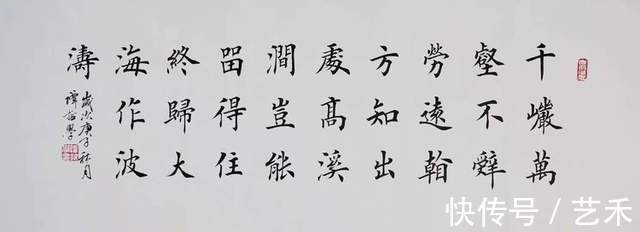 千巖萬
壑不辤
勞遠翰
方知出
處髙溪
澗豈能
留得住
終歸大
海作波
濤
歲次庚子秋月
快传号 / 艺禾